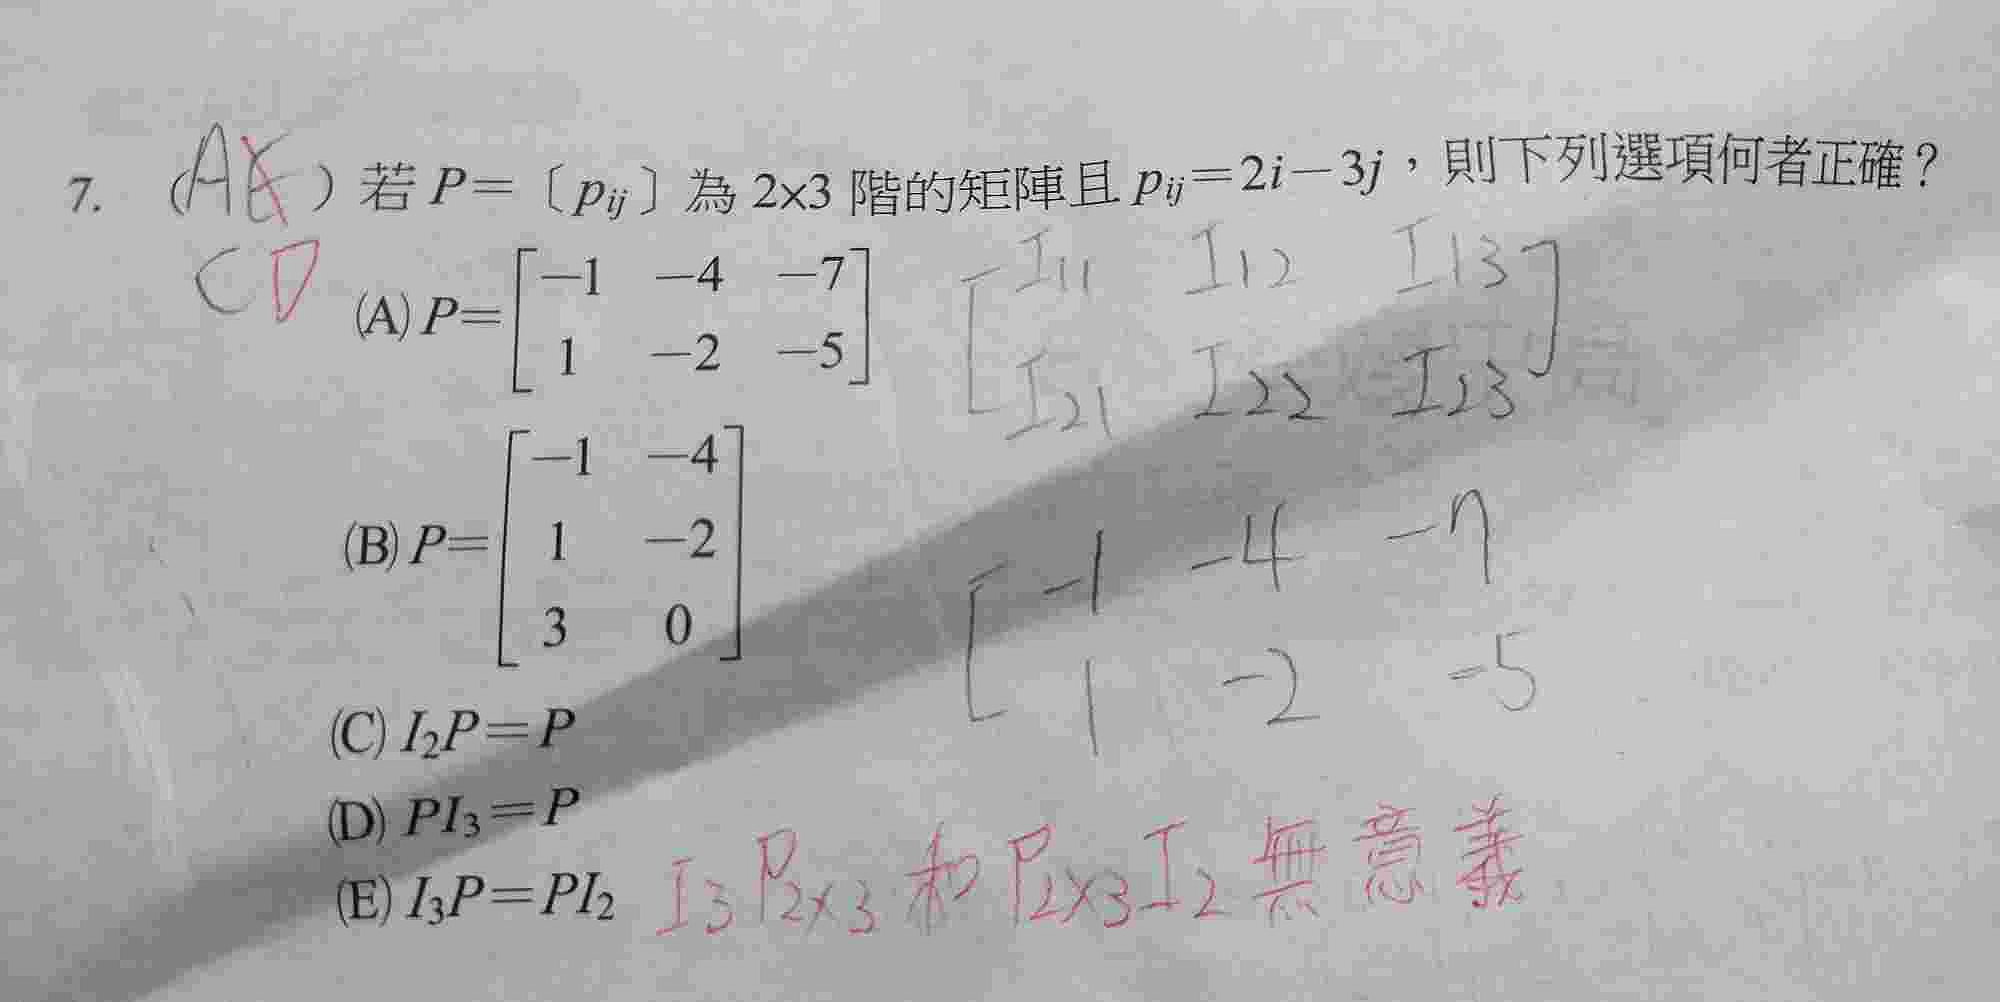 7. (AE) 若 P=〔pij〕為 2×3 階的矩陣且 pij=2i-3j，則下列選項何者正確？
CD
(A) P= [ -1 -4 -7
1 -2 -5 ]
[ I11 I12 I13
I21 I22 I23 ]
(B) P= [ -1 -4
1 -2
3 0 ]
[ -1 -4 -7
1 -2 -5
(C) I2P=P
(D) PI3=P
(E) I3P=PI2 I3P2×3 和 P2×3I2 無意義